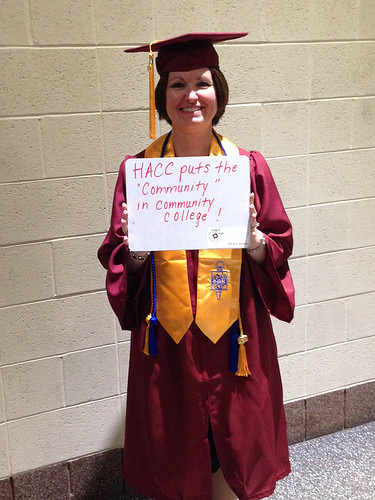 HACC puts the
"Community"
in community
college !